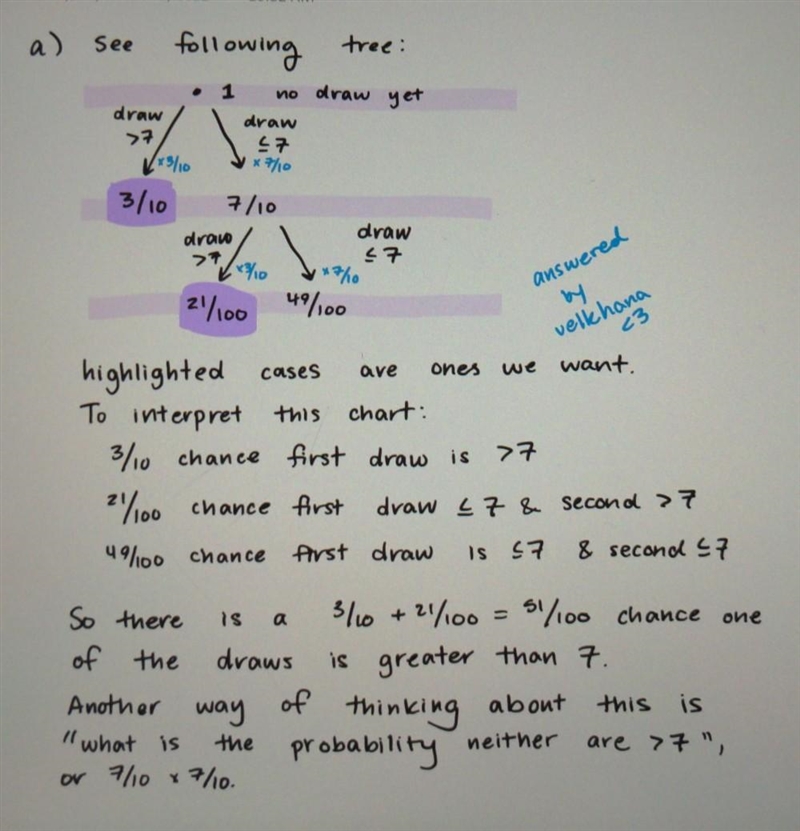 a) see following tree:
• 1 no draw yet
draw
>7
draw
≤7
×3/10
×7/10
3/10
7/10
draw
>7
draw
≤7
×3/10
×7/10
21/100
49/100
answered
by
velkhana
<3
highlighted cases are ones we want.
To interpret this chart:
3/10 chance first draw is >7
21/100 chance first draw ≤7 & second >7
49/100 chance first draw is ≤7 & second ≤7
So there is a 3/10 + 21/100 = 51/100 chance one
of the draws is greater than 7.
Another way of thinking about this is
"what is the probability neither are >7",
or 7/10 x 7/10.